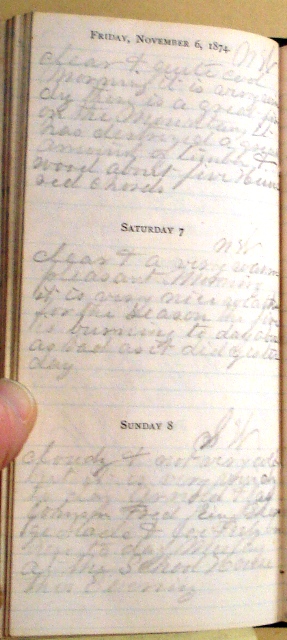 FRIDAY, NOVEMBER 6, 1874.
N W
Clear & quite cool
Morning it is very win
dy there is a great fire
on the Mountain it
has destroyed a great
amount of timber &
wood about five hun
dred chords
SATURDAY 7
N W
Clear & a very warm
pleasant Morning
it is very nice weather
for the Season the fire
is burning to day about
as bad as it did yester
day
SUNDAY 8
S W
Cloudy & not very cold
but it is very windy
to day
Johnson Fred
& Joe
here to day Meeting
at the School House
this Evening